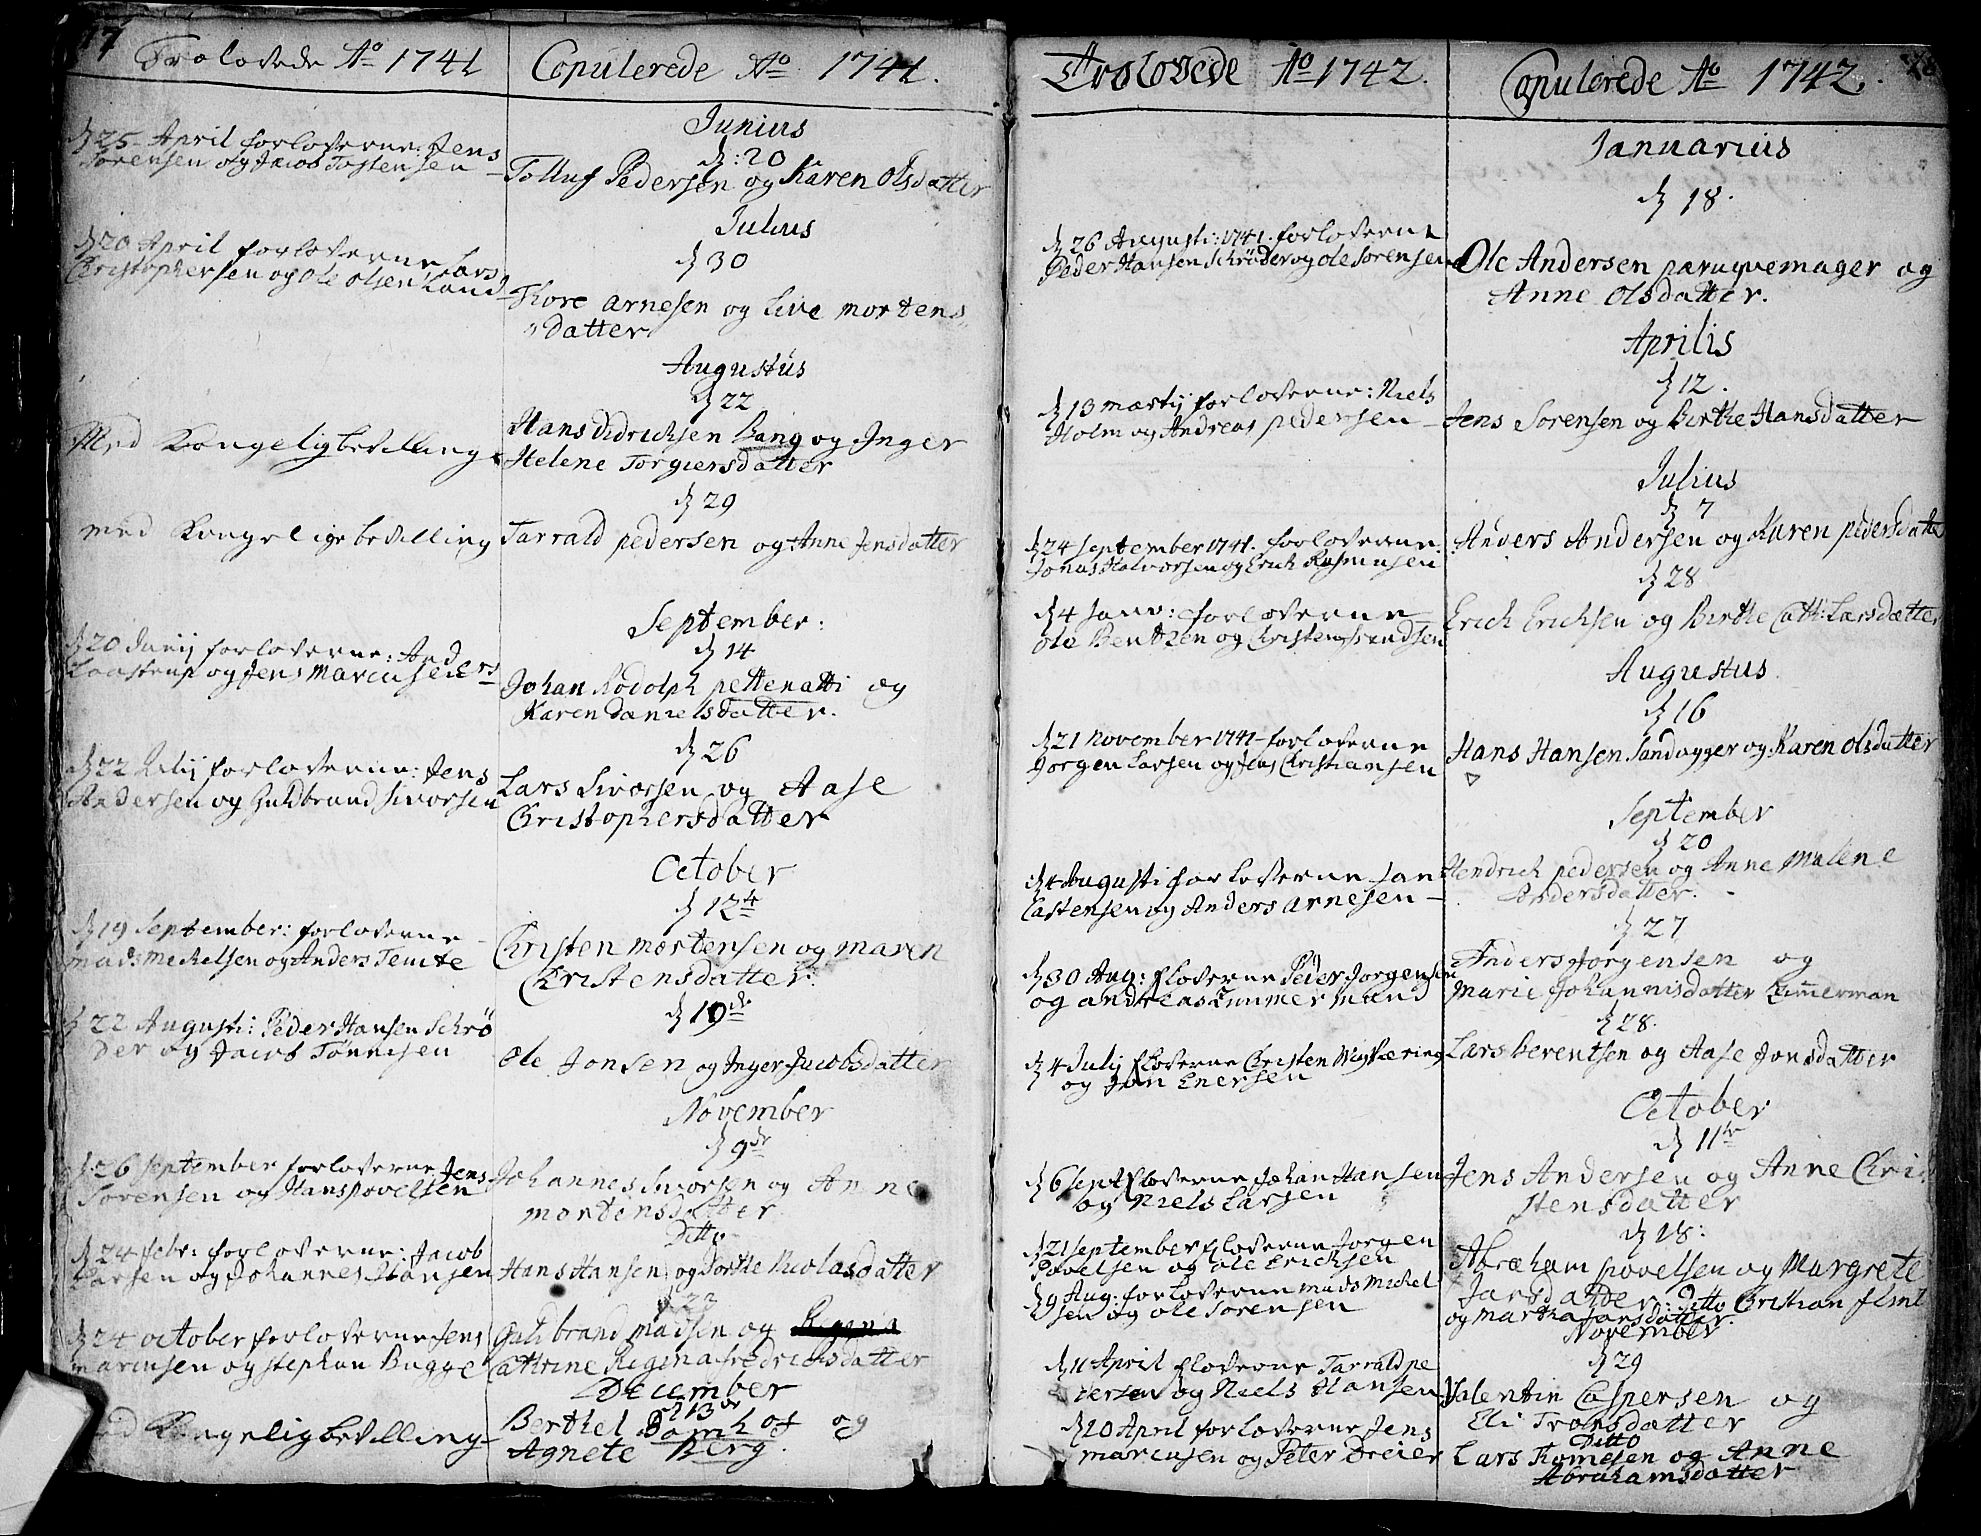 77
Trolovede Aº 1741
d 25 April forloverne: Jens
Sørensen og Jacob Tostensen
d 20 April forloverne Lars
Christophersen og Ole Olsen Lund
Med Kongelig bevilling
med Kongelige bevilling
d 20 Junij forloverne: Anders
Laastrup og Jens Marcusen
d 22 Julij forloverne: Jens
Andersen og Guldbrand Sivorsen
d 19 September: forloverne
Mads Mickelsen og Anders Temte
d 22 Augusti: Peder Hansen Schrø
der og Jacob Tønnesen
d 26 September forloverne Jens
Sørensen og Hans Povelsen
d 24 febr: forloverne: Jacob
Larsen og Johannes Hansen
d 24 October forloverne Jens
Marcusen og Stephan Bugge
med Kongelig bevilling
Copulerede Aº 1741.
Junius
d: 20
Tolluf Pedersen og Karen Olsdatter
Julius
d 30
Thore Arnesen og Live Mortens
datter
Augustus
d 22
Hans Didricksen Bang og Inger
Helene Torgiersdatter
d 29
Tarrald Pedersen og Anne Jensdatter
September:
d 14
Johan Rodolph Pettenatti og
Karen Danielsdatter.
d 26
Lars Sivorsen og Aase
Christophersdatter
October
d 12te
Christen Mortensen og Maren
Christensdatter.
d 19de
Ole Jonsen og Inger Jacobsdatter
November
d 9de
Johannes Sivorsen og Anne
Mortensdatter
Ditto
Hans Hansen og Dorthe Nicolasdatter
d 22
Guldbrand Madsen og
Cathrine Regina Fredrichsdatter
December
d 13de
Berthel Bomhof og
Agnete Berg.
Trolovede Aº 1742.
d 26 Augusti: 1741. forloverne
Peder Hansen Schrøder og Ole Sørensen
d 13 Martij forloverne: Niels
Holm og Andreas Pedersen
d 24 September 1741. forloverne:
Jonas Halvorsen og Erich Rasmusen
d 4 Janv: forloverne
Ole Bentzen og Christen Svendsen
d 21 November 1741 forloverne
Jørgen Larsen og Jens Christiansen
d 4 Augusti forloverne Jan
Castensen og Anders Arnesen
d 30 Aug: floverne Peder Jørgensen
og Andreas Zimmermand
d 4 Julij floverne Christen
og Jan Enersen
d 6 Sept floverne Johan Hansen
og Niels Larsen
d 21 September floverne Jørgen
Povelsen og Ole Ericksen
d 9 Aug: forloverne Mads Mickel
sen og Ole Sørensen
d 11 April floverne Tarrald Pe
dersen og Niels Hansen
d 20 April forloverne Jens
Marcusen og Peter Dreier
78
Copulerede Aº 1742.
Januarius
d 18.
Ole Andersen paruqvemager og
Anne Olsdatter.
Aprilis
d 12.
Jens Sørensen og Birthe Hansdatter
Julius
d 7
Anders Andersen og Karen Pedersdatter
d 28
Erich Erichsen og Birthe Cath: Larsdatter
Augustus
d 16
Hans Hansen Sandagger og Karen Olsdatter
September
d 20
Hendrich Pedersen og Anne Malene
Andersdatter.
d 27
Anders Jørgensen og
Marie Johannisdatter Zimmerman
d 28.
Lars Berentsen og Aase Jonsdatter
October
d 11te
Jens Andersen og Anne Chri
stensdatter
d 18:
Abraham Povelsen og Margrete
Jansdatter: Ditto Christian Flint
og Martha Jansdatter.
November
d 29
Valentin Caspersen og
Eli Tronsdatter
Ditto
Lars Thomesen og Anne
Abrahamsdatter